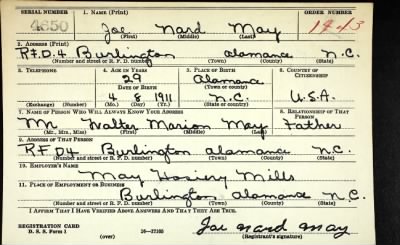 SERIAL NUMBER 1. Name (Print) ORDER NUMBER
4350 Joe Nard May 1943
(First) (Middle) (Last)
2. Address (Print)
R.F.D. 4 Burlington Alamance N.C.
(Number and street or R. F. D. number) (Town) (County) (State)
3. Telephone 4. Age in Years 5. Place of Birth 6. Country of Citizenship
29 Alamance
Date of Birth (Town or county)
4 8 1911 N.C. U.S.A.
(Exchange) (Number) (Mo.) (Day) (Yr.) (State or country)
7. Name of Person Who Will Always Know Your Address 8. Relationship of That Person
Mr Walter Marion May Father
(Mr., Mrs., Miss) (First) (Middle) (Last)
9. Address of That Person
R.F.D4 Burlington Alamance N.C.
(Number and street or R. F. D. number) (Town) (County) (State)
10. Employer's Name
May Hosiery Mills
11. Place of Employment or Business
Burlington Alamance N.C.
(Number and street or R. F. D. number) (Town) (County) (State)
I Affirm That I Have Verified Above Answers and That They Are True.
REGISTRATION CARD
D. S. S. Form 1 (over) 16—17105 Joe Nard May
(Registrant's signature)